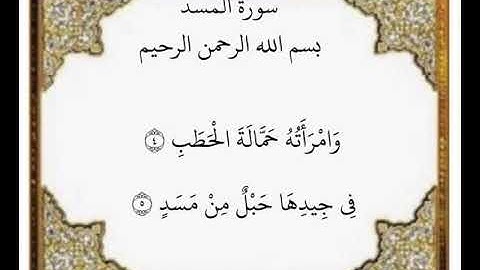 سورة المسد
بسم الله الرحمن الرحيم
وَامْرَأَتُهُ حَمَّالَةَ الْحَطَبِ ۝٤
فِي جِيدِهَا حَبْلٌ مِنْ مَسَدٍ ۝٥